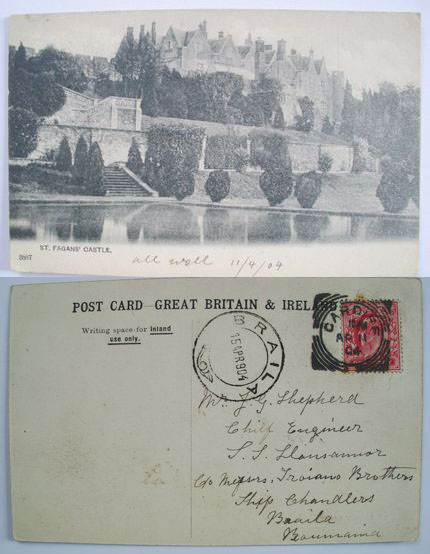 ST. FAGANS' CASTLE.
3887
all well 11/4/04
POST CARD—GREAT BRITAIN & IRELAND
Writing space for Inland
use only.
CARDIFF
AP
04
BRAILA
15APR904
Mr. J. G. Shepherd
Chief Engineer
S. S. Llansannor
C/o Messrs. Troiano Brothers
Ship Chandlers
Braila
Roumania